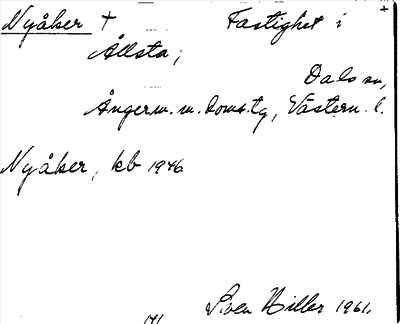 Nyåker + Fastighet i
Ållsta;
Dals sn,
Ångerm. m. doms.tg, Västern. l.
Nyåker, kb 1946
Sven Hiller 1961.